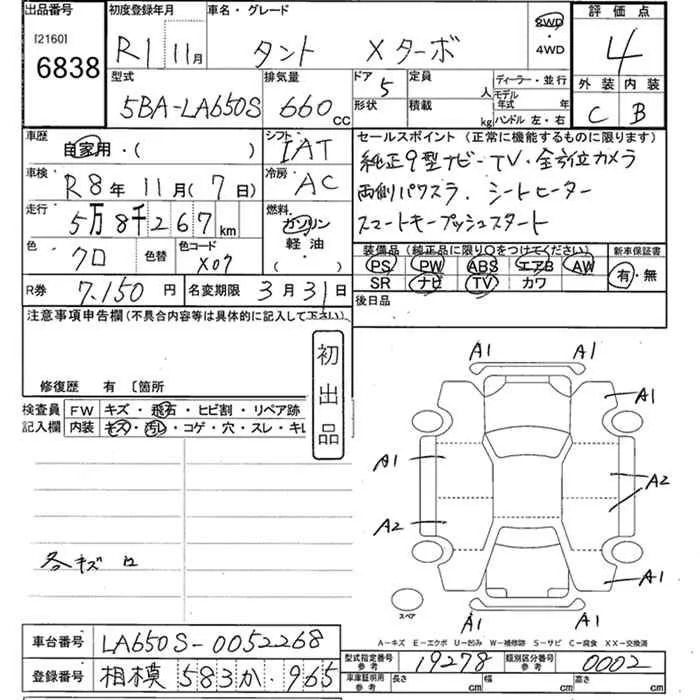 出品番号
[2160]
6838
初度登録年月
R1 11月
車名・グレード
タント Xターボ
2WD
・4WD
評価点
4
外装 内装
C B
型式
5BA-LA650S
排気量
660cc
ドア
5
形状
定員
人
積載
kg
ディーラー・並行
モデル年式 年
ハンドル 左・右
車歴
自家用・( )
シフト
IAT
セールスポイント (正常に機能するものに限ります)
純正9型ナビ-TV・全方位カメラ
両側パワスラ、シートヒーター
スマートキープッシュスタート
車検
R8年 11月(7日)
冷房
AC
走行
5万8千267km
燃料
ガソリン
軽油・
( )
色
クロ
色替
色コード
X07
装備品(純正品に限り○をつけてください) 新車保証書
PS PW ABS エアB AW
SR ナビ TV カワ
有・無
R券
7.150円
名変期限 3月31日
後日品
注意事項申告欄(不具合内容等は具体的に記入して下さい)
初出品
修復歴 有 〔箇所
検査員
記入欄
FW キズ・飛石・ヒビ割・リペア跡
内装 キズ・汚レ・コゲ・穴・スレ・キレ
各キズ
A1 A1
A1
A1
A2
A2
A1
A1 A1
スペア
A-キズ E-エクボ U-凹み W-補修跡 S-サビ C-腐食 XX-交換済
車台番号
LA650S-0052268
型式指定番号
参考
19278
類別区分番号
参考
0002
登録番号
相模 583 か・965
車庫証明用
参考
長さ cm
幅 cm
高さ cm